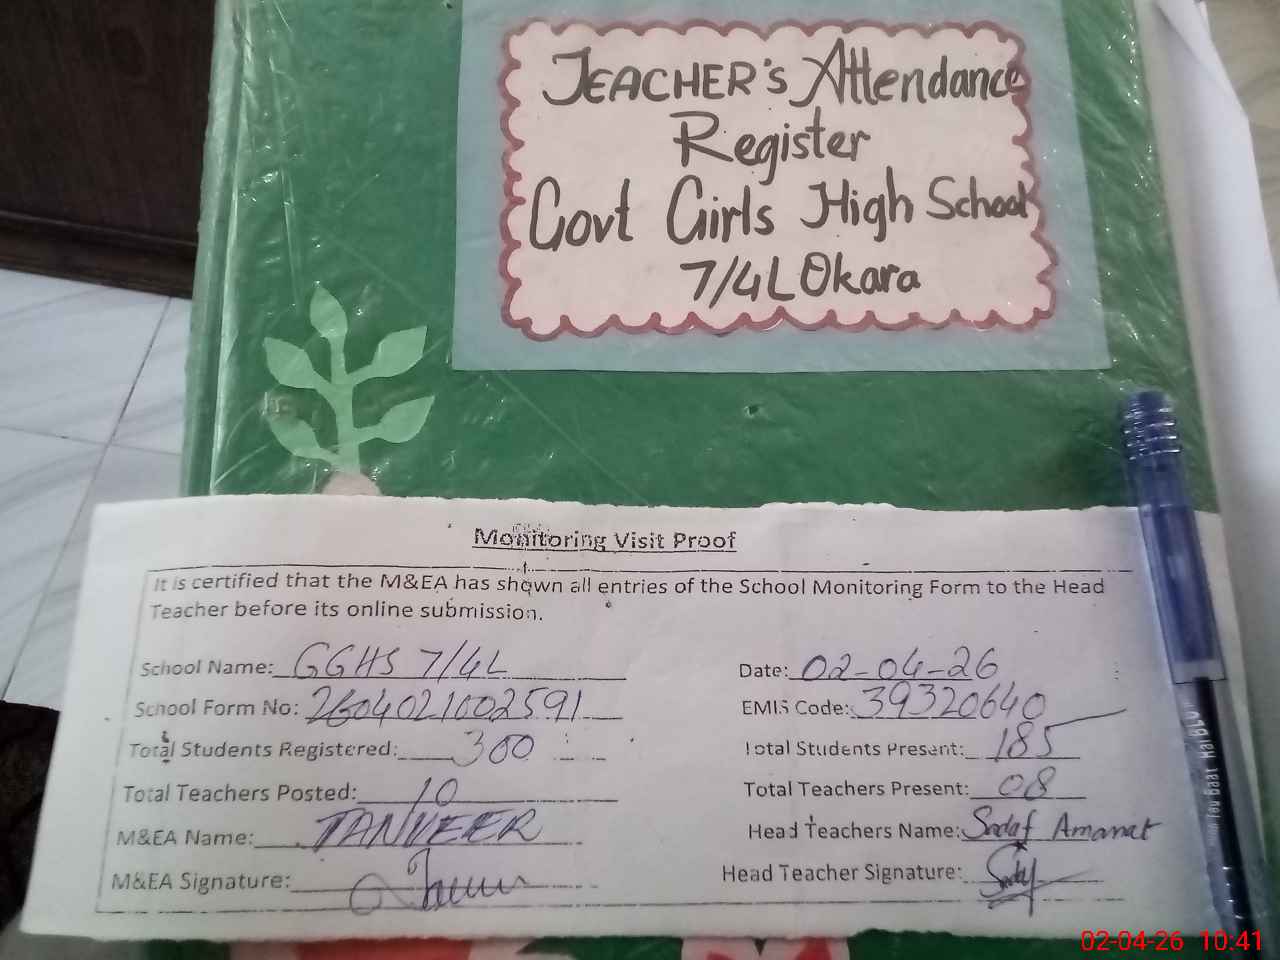 TEACHER'S Attendance
Register
Govt Girls High School
7/4L Okara
Monitoring Visit Proof
It is certified that the M&EA has shown all entries of the School Monitoring Form to the Head
Teacher before its online submission.
School Name: GGHS 7/4L
Date: 02-04-26
School Form No: 2604021002591
EMIS Code: 39320640
Total Students Registered: 300
Total Students Present: 185
Total Teachers Posted: 10
Total Teachers Present: 08
M&EA Name: TANVEER
Head Teachers Name: Sadaf Amanat
M&EA Signature:
Head Teacher Signature:
02-04-26 10:41